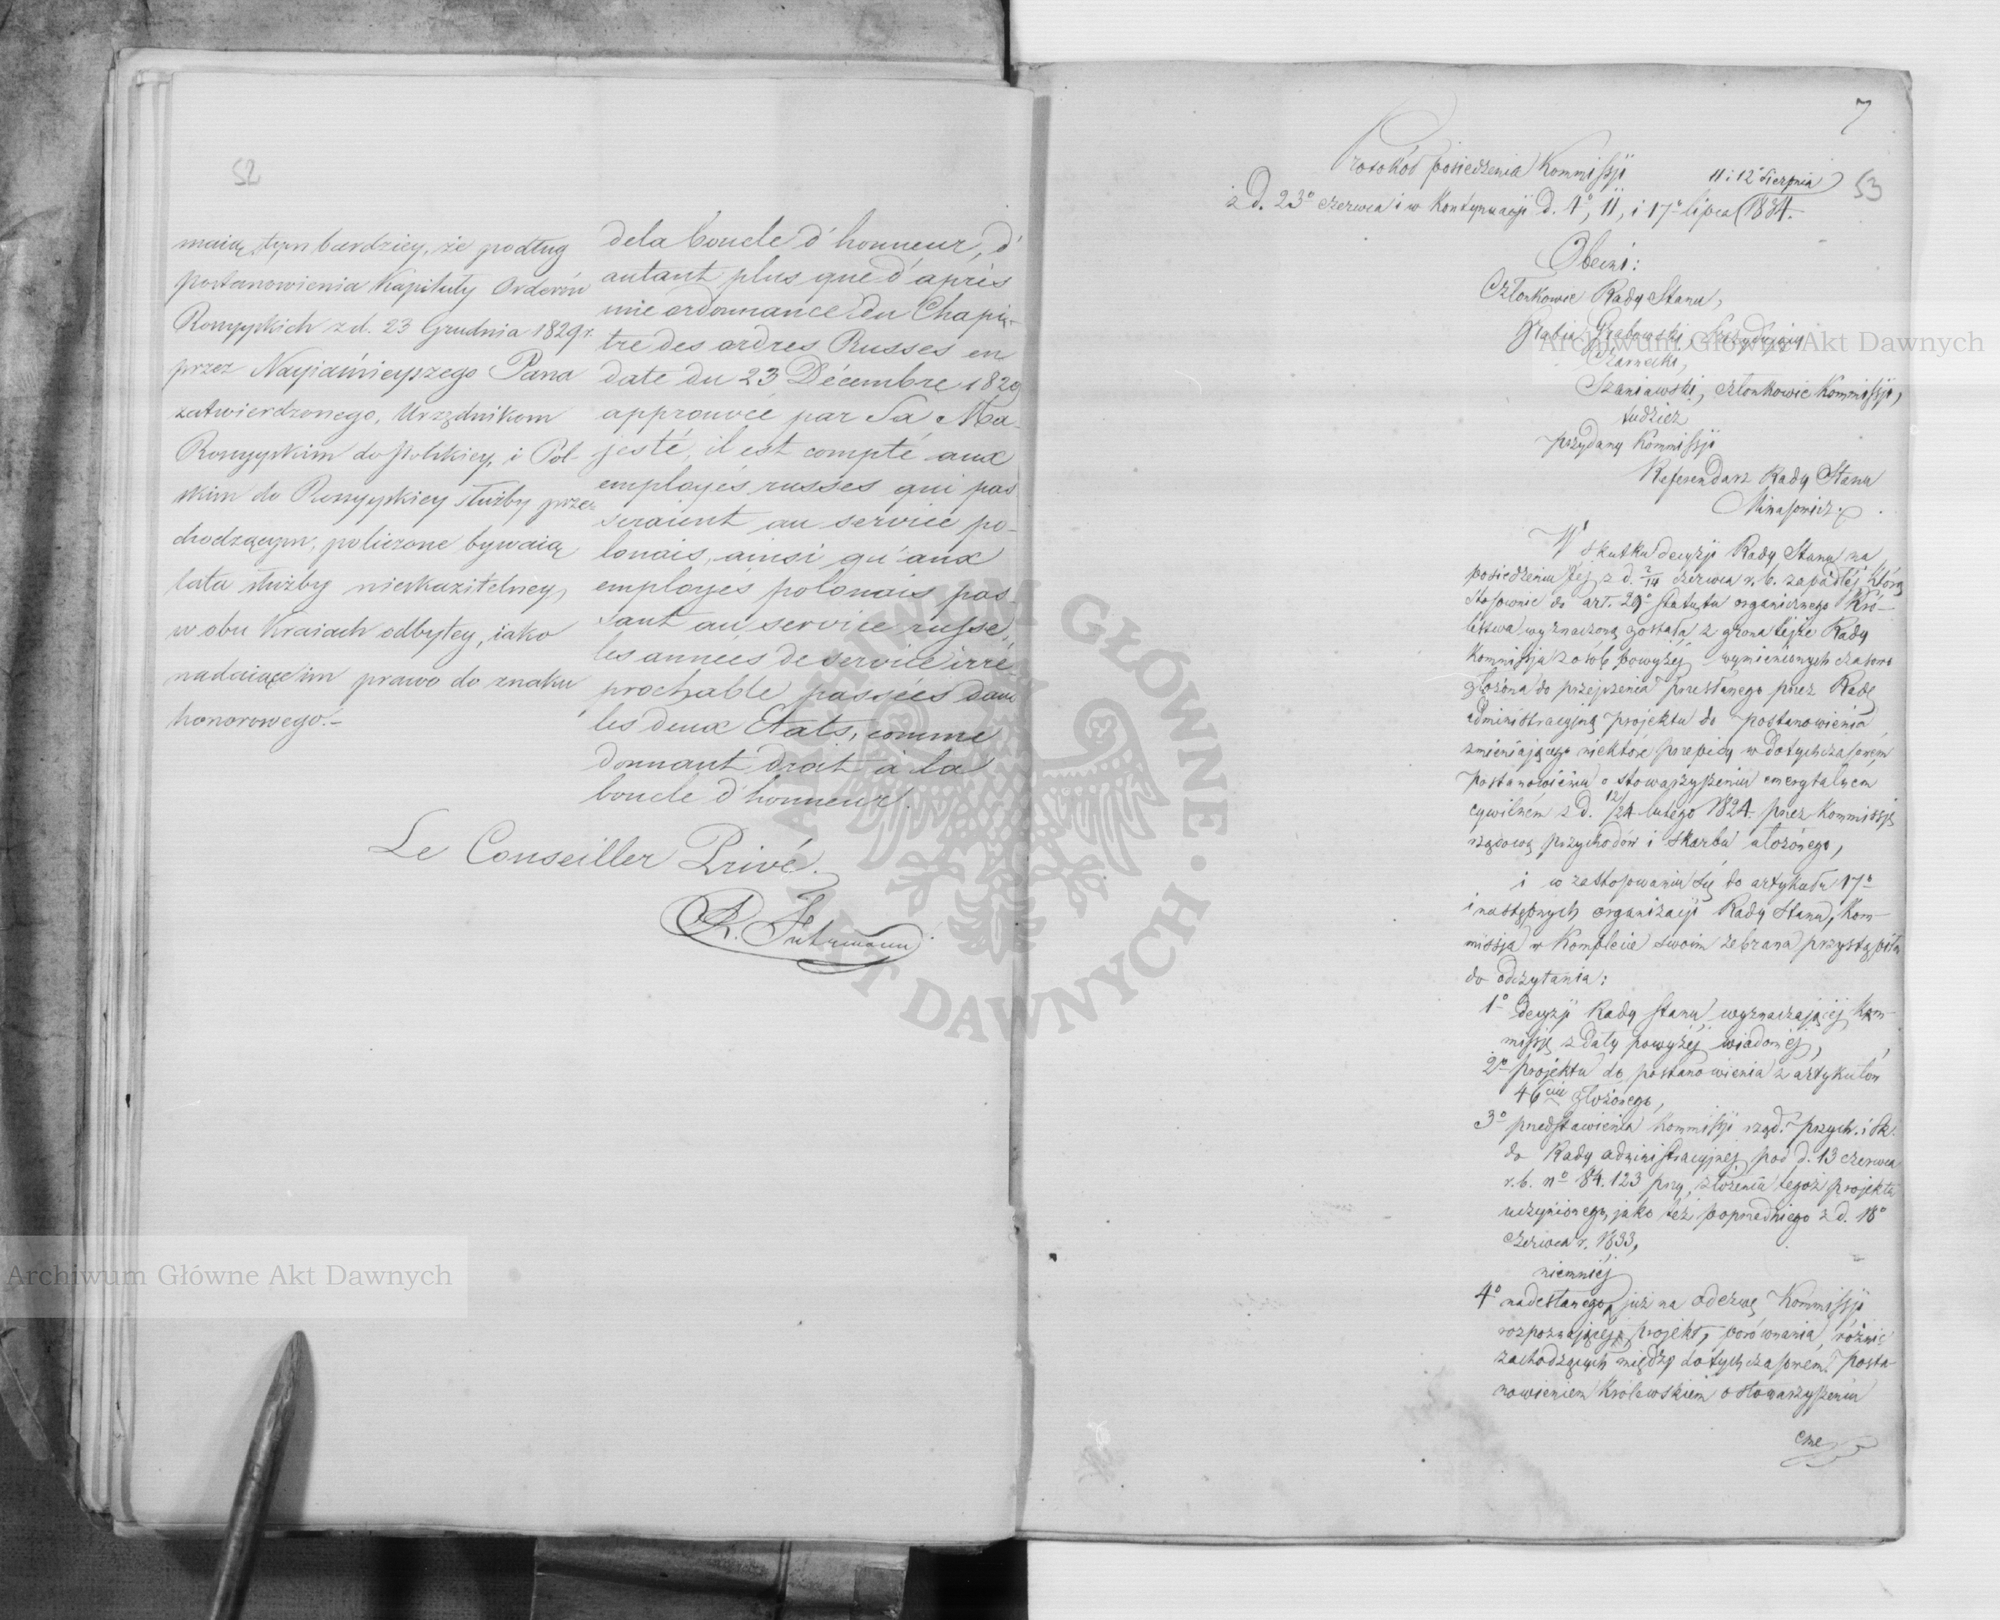 52
maią, tym bardziey, że podług
postanowienia Kapituły Orderów
Rossyyskich z d. 23 Grudnia 1829 r.
przez Nayiaśnieyszego Pana
zatwierdzonego, Urzędnikom
Rossyyskim do Polskiey, i Pol-
skim do Rossyyskiey służby prze-
chodzącym, policzone bywaią
lata służby nieskazitelney,
w obu Kraiach odbytey, iako
nadaiące im prawo do znaku
honorowego.–
de la boucle d'honneur, d'
autant plus que d'après
une ordonnance du Chapi-
tre des ordres Russes en
date du 23 Décembre 1829
approuvée par Sa Ma-
jesté, il est compté aux
employés russes qui pas
seraient au service po-
lonais, ainsi qu'aux
employes polonais pas-
sant au service russe,
les annees de service irré-
prochable passées dans
les deux Etats, comme
donnant droit à la
boucle d'honneur.
Le Conseiller Privé.
R. Fuhrmann
7
53
Protokół posiedzenia Kommissji
11 i 12 Sierpnia
z d. 23º czerwca i w Kontynuacji d. 1º, 11, i 17º lipca 1834.
Obecni:
Członkowie Rady Stanu,
Hrabia Grabowski, Prezydujący
Czarnecki,
Szaniawski, członkowie Kommissji,
tudzież
przydany Kommissji
Referendarz Rady Stanu
Minasowicz.
W skutku decyzji Rady Stanu na
posiedzeniu tej z d. 2/14 czerwca r. b. zapadłej, którą
stosownie do art. 29º statutu organicznego Kró-
lestwa wyznaczoną została z grona tejże Rady
Kommissja z osób powyżej wymienionych czasowo
złożona do przejrzenia przesłanego przez Radę
administracyjną projektu do postanowienia
zmieniającego niektóre przepisy w dotychczasowem
postanowieniu o stowarzyszeniu emerytalnem
cywilnem z d. 12/24 lutego 1824 przez Kommissję
rządową przychodów i skarbu ułożonego,
i w zastosowaniu się do artykułu 17º
i następnych organizacji Rady Stanu, Kom-
missja w Komplecie swoim zebrana przystąpiła
do odczytania:
1º decyzji Rady Stanu wyznaczającej Kom-
missję z daty powyżej wiadomej,
2º projektu do postanowienia z artykułów
46ciu złożonego,
3º przedstawienia Kommissji rząd. przych. i Sk.
do Rady administracyjnej pod d. 13 czerwca
r. b. nº 84.123 przy złożeniu tegoż projektu
uczynionego, jako też poprzedniego z d. 18º
czerwca r. 1833,
niemniej
4º nadesłanego już na odezwę Kommissji
rozpoznającej projekt, porównania różnic
zachodzących między dotychczasowem posta-
nowieniem Królewskiem o stowarzyszeniu
eme
Archiwum Główne Akt Dawnych
Archiwum Główne Akt Dawnych
ARCHIWUM GŁÓWNE · AKT DAWNYCH ·